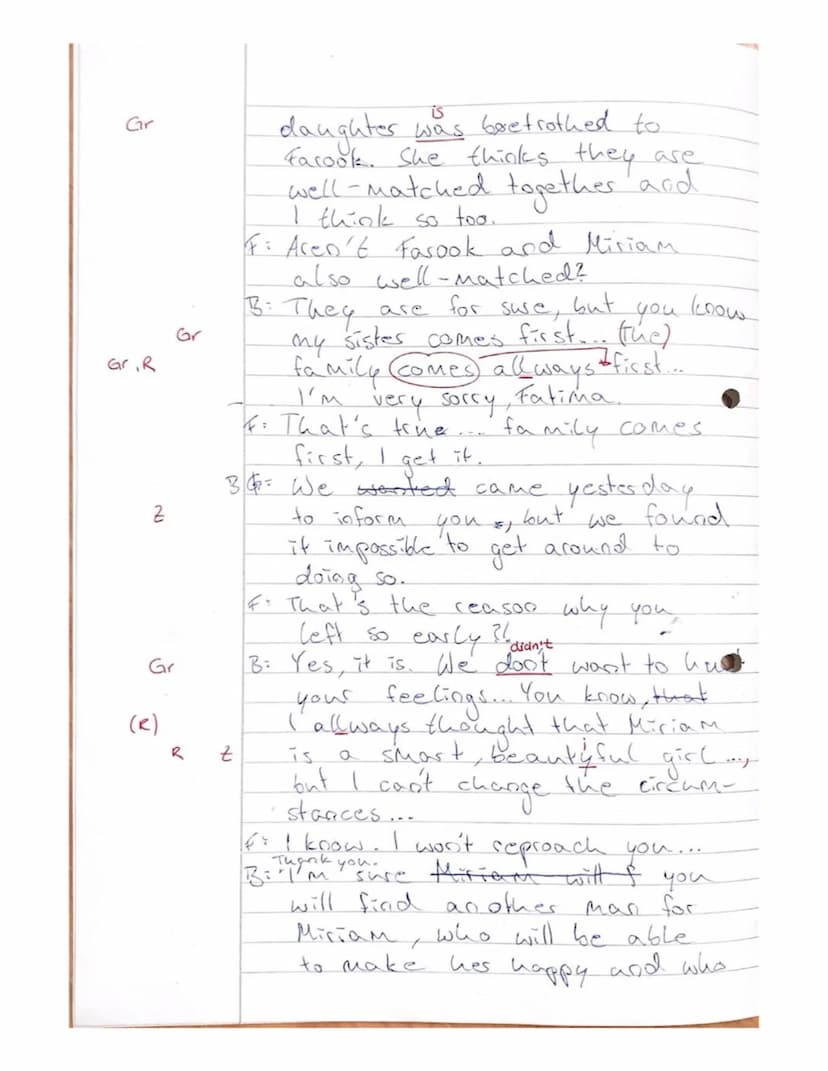 is
Gr daughter was boetrothed to
Farook. She thinks they are
well-matched together and
I think so too.
F: Aren't Farook and Miriam
also well-matched?
B: They are for sure, but you know
Gr my sister comes first... (The)
Gr, R family comes allways first...
I'm very sorry, Fatima.
F: That's true... family comes
first, I get it.
B: We wanted came yesterday
Z to inform you, but we found
it impossible to get around to
doing so.
F: That's the reason why you
left so early?!
didn't
Gr B: Yes, it is. We don't want to
your feelings... You know, that
(R) I allways thought that Miriam
R Z is a smart, beautyful girl...,
but I can't change the circum-
stances...
F: I know. I won't reproach you...
Thank you.
B: I'm sure Miriam will f you
will find another man for
Miriam, who will be able
to make her happy and who